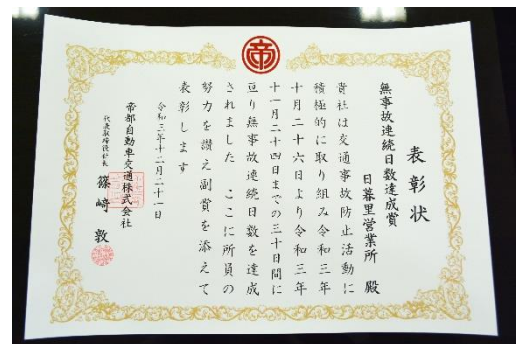 帝
表彰状
無事故連続日数達成賞
日暮里営業所 殿
貴社は交通事故防止活動に
積極的に取り組み令和三年
十月二十六日より令和三年
十一月二十四日までの三十日間に
亘り無事故連続日数を達成
されました ここに所員の
努力を讃え副賞を添えて
表彰します
令和三年十二月二十一日
帝都自動車交通株式会社
代表取締役社長 篠﨑 敦